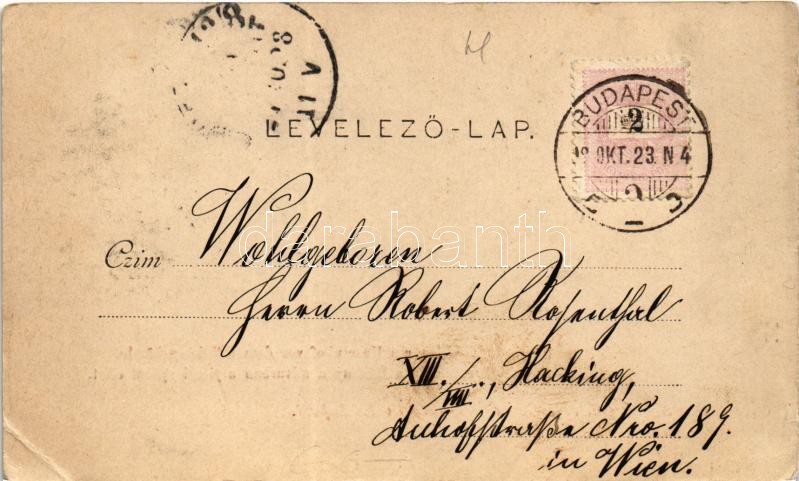 LEVELEZŐ-LAP.
BUDAPEST
2
OKT. 23. N 4
Czim
Wohlgeboren
Herrn Robert Rosenthal
XIII./VIII., Hacking,
Auhofstraße Nro. 189.
in Wien.
darabanth